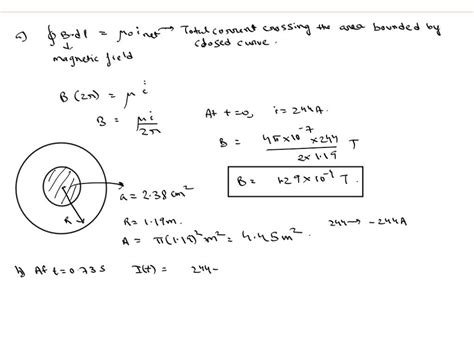 a) ∮ B·dl = μ₀ i net → Total current crossing the area bounded by
closed curve.
↓
magnetic field
B (2π) = μ i
B = μi / 2π
At t=0, i = 244A.
B = 4π×10⁻⁷ ×244 / 2×1.19 T
B = 1.29×10⁻⁴ T.
a = 2.38 cm²
R
R = 1.19m.
A = π(1.19)² m² = 4.45m². 244 → -244A
b) At t=0.73s I(t) = 244-